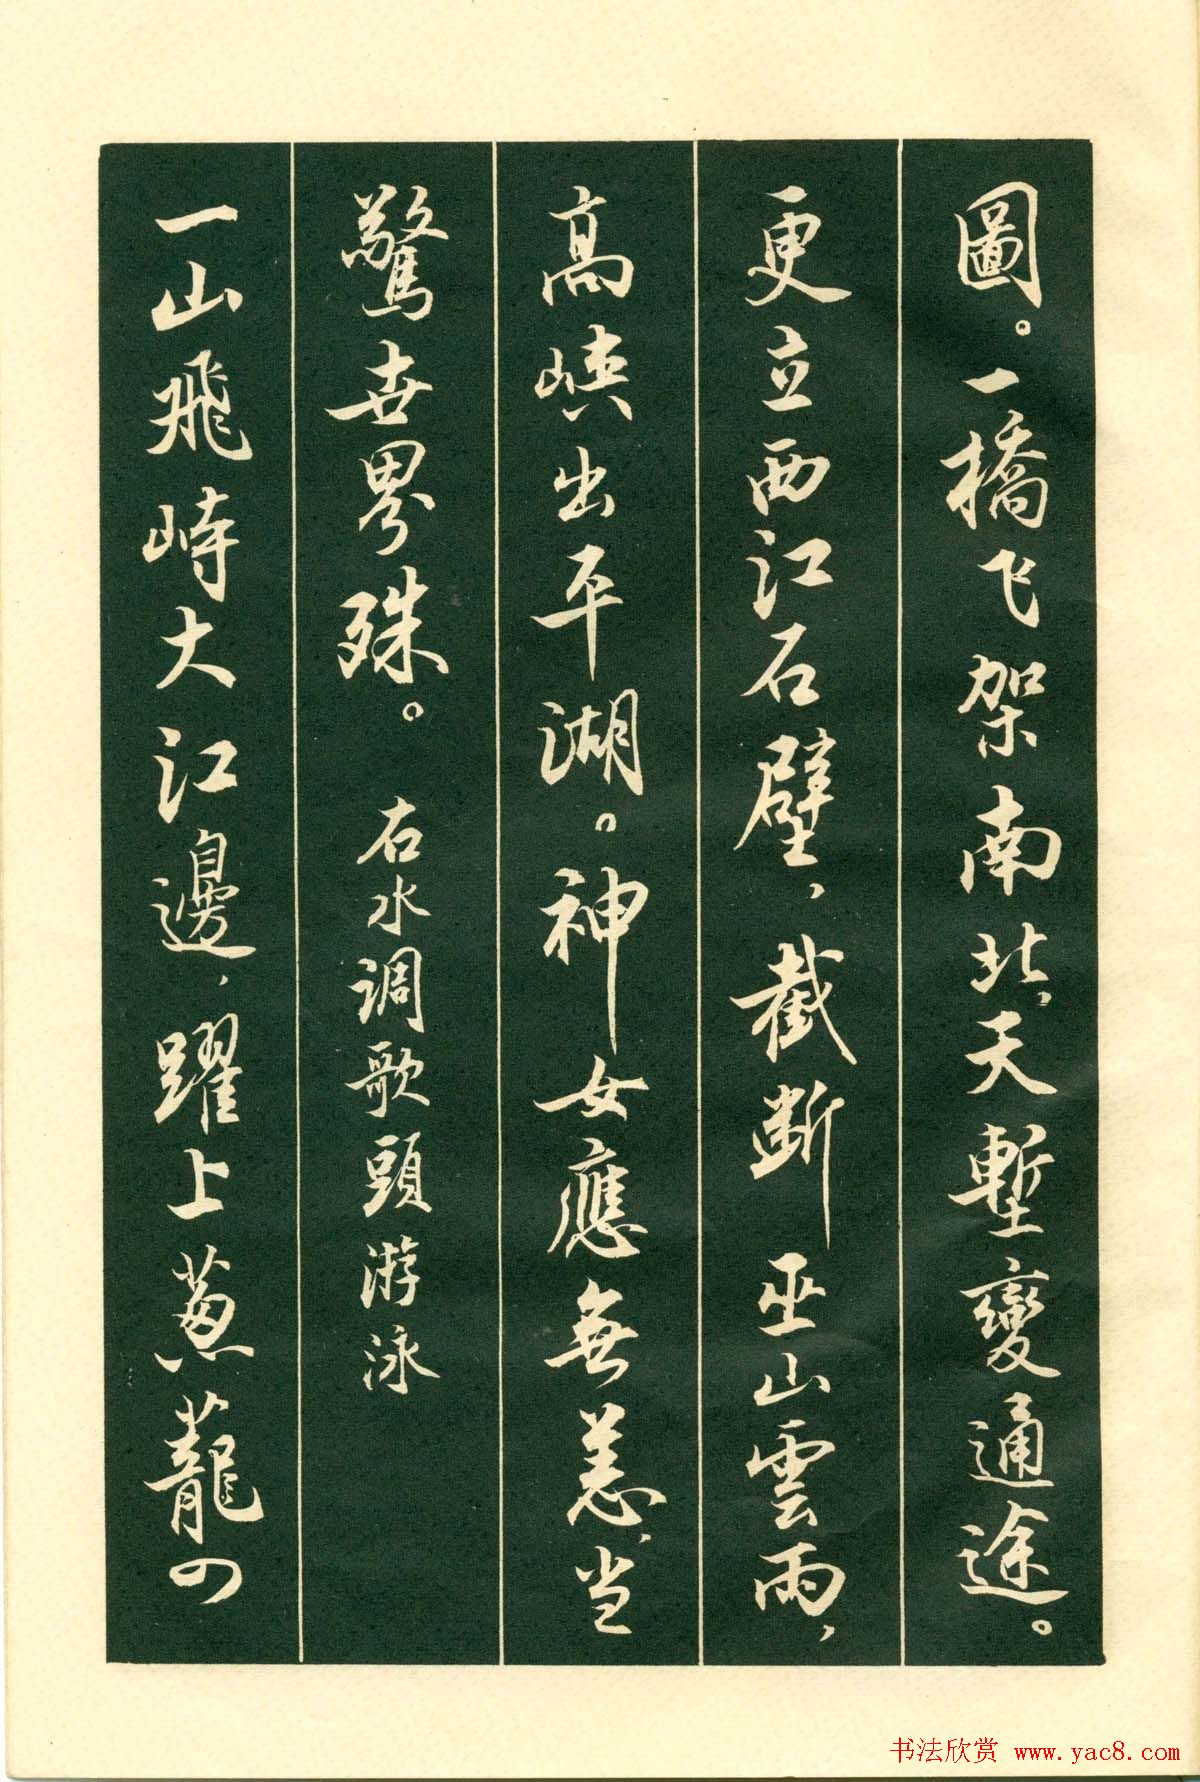 圖。一橋飞架南北，天塹變通途。
更立西江石壁，截断巫山雲雨，
高峡出平湖。神女應無恙，当
驚世界殊。 右水调歌頭游泳
一山飛峙大江邊，躍上葱蘢四
书法欣赏 www.yac8.com